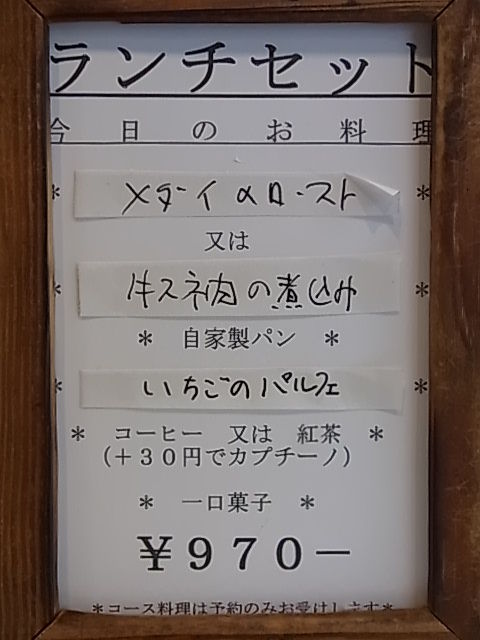 ランチセット
今日のお料理
* メダイのロースト *
又は
* 牛スネ肉の煮込み *
* 自家製パン *
* いちごのパルフェ *
* コーヒー 又は 紅茶 *
(＋３０円でカプチーノ)
* 一口菓子 *
¥９７０－
*コース料理は予約のみお受けします*